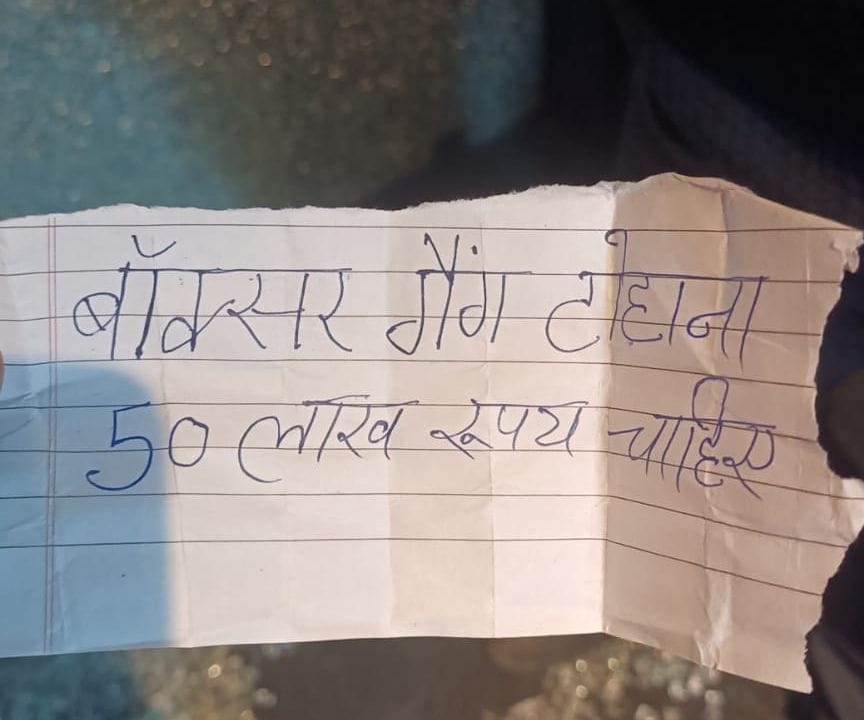 बॉक्सर गैंग टोहाना
50 लाख रूपय चाहिए